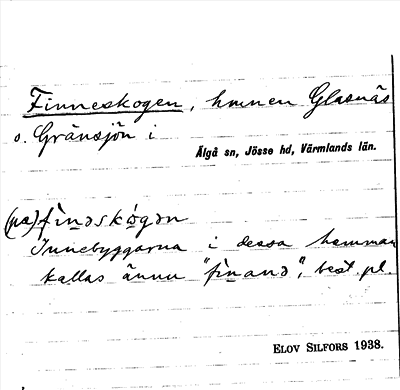 Finneskogen, hmnen Glasnäs
o. Gränsjön i
Älgå sn, Jösse hd, Värmlands län.
(pa) fìnəskṓgən
Innebyggarna i dessa hemman
kallas ännu "fìnanə", best. pl.
ELOV SILFORS 1938.